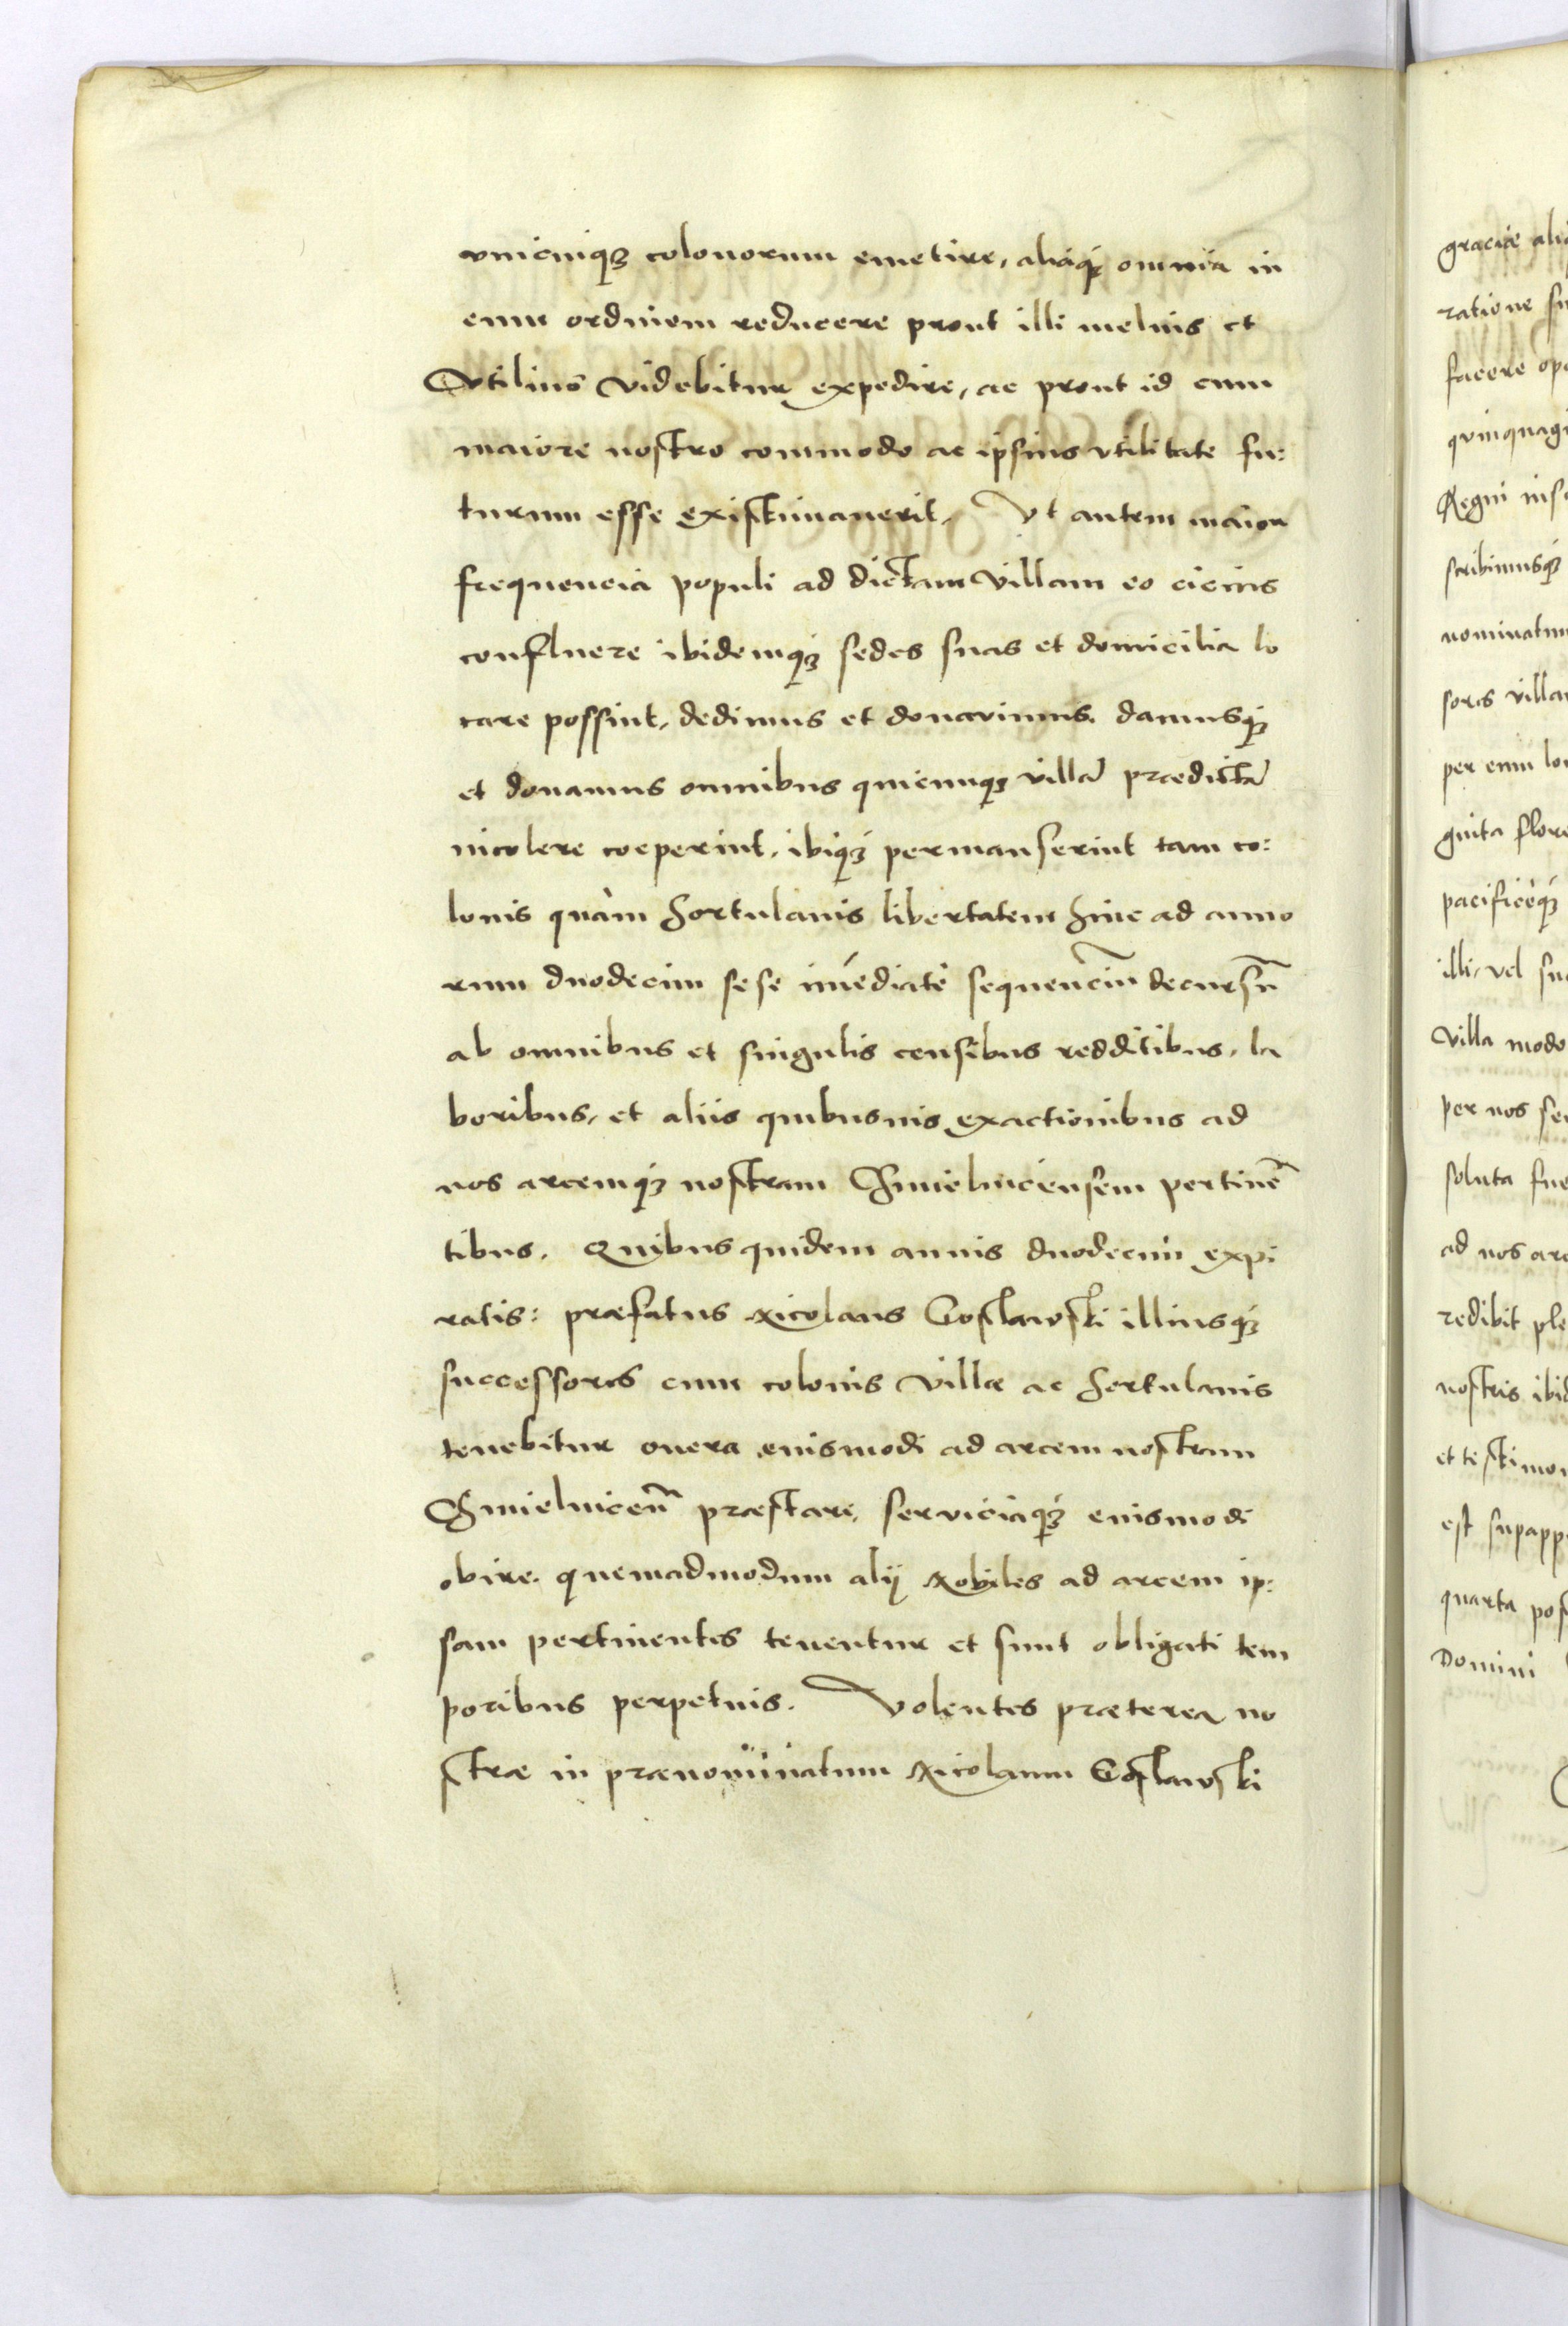 vnicuiq; colonorum emetire, aliaq; omnia in
eum ordinem reducere prout illi melius et
Vtilius videbitur expedire, ac prout id cum
maiore nostro commodo ac ipsius vtilitate fu:
turum esse existimauerit. Vt autem maior
frequencia populi ad dictam villam eo cicius
confluere ibidemq; sedes suas et domicilia lo
care possint, dedimus et donauimus. damusq;
et donamus omnibus quicunq; villã prædictã
incolere coeperint, ibiq; permanserint tam co:
lonis quàm hortulanis libertatem hinc ad anno
rum duodecim sese im̃ediatè sequenciũ decursũ
ab omnibus et singulis censibus redditibus, la
boribus, et aliis quibusuis exactionibus ad
nos arcemq; nostram Chmielnicensem pertinẽ
tibus. Quibus quidem annis duodecim expi
ratis: præfatus Nicolaus Goslawski illiusq;
successores cum colonis villæ ac hortulanis
tenebitur onera eiusmodi ad arcem nostram
Chmielniceñ præstare, serviciaq; eiusmodi
obire. quemadmodum alij Nobiles ad arcem ip:
sam pertinentes tenentur et sunt obligati tem
poribus perpetuis. Volentes præterea no
stræ in prænominatum Nicolaum Goslawski
graciæ
ratione
facere
Regni
scribimusq;
sores
per eum
guita
pacificeq;
illi, vel
Villa modo
per nos
soluta
ad nos
redibit
nostris
et
est
quarta
Domini